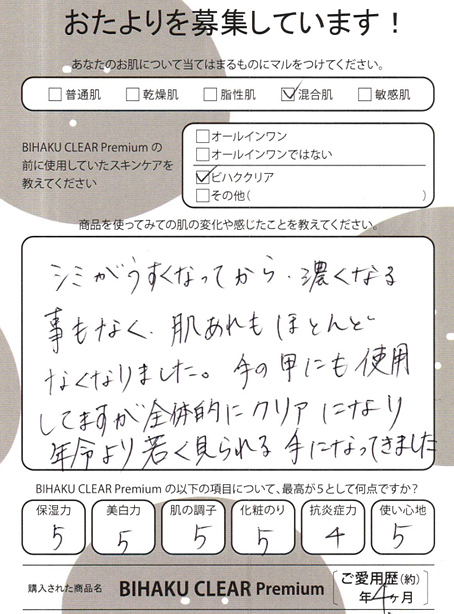 おたよりを募集しています！
あなたのお肌について当てはまるものにマルをつけてください。
普通肌 乾燥肌 脂性肌 混合肌 敏感肌
BIHAKU CLEAR Premium の
前に使用していたスキンケアを
教えてください
オールインワン
オールインワンではない
ビハククリア
その他( )
商品を使ってみての肌の変化や感じたことを教えてください。
シミがうすくなってから、濃くなる
事もなく、肌あれもほとんど
なくなりました。手の甲にも使用
してますが全体的にクリアになり
年令より若く見られる手になってきました
BIHAKU CLEAR Premium の以下の項目について、最高が5として何点ですか？
保湿力 美白力 肌の調子 化粧のり 抗炎症力 使い心地
5 5 5 5 4 5
購入された商品名 BIHAKU CLEAR Premium
ご愛用歴(約)
年4ヶ月